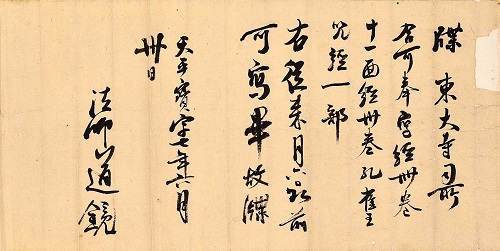 牒 東大寺司所
應可奉寫經卌卷
十一面經卅卷 孔雀王
呪經一部
右從來月六日以前
可寫畢 故牒
天平寶字七年六月
卅日
法師道鏡